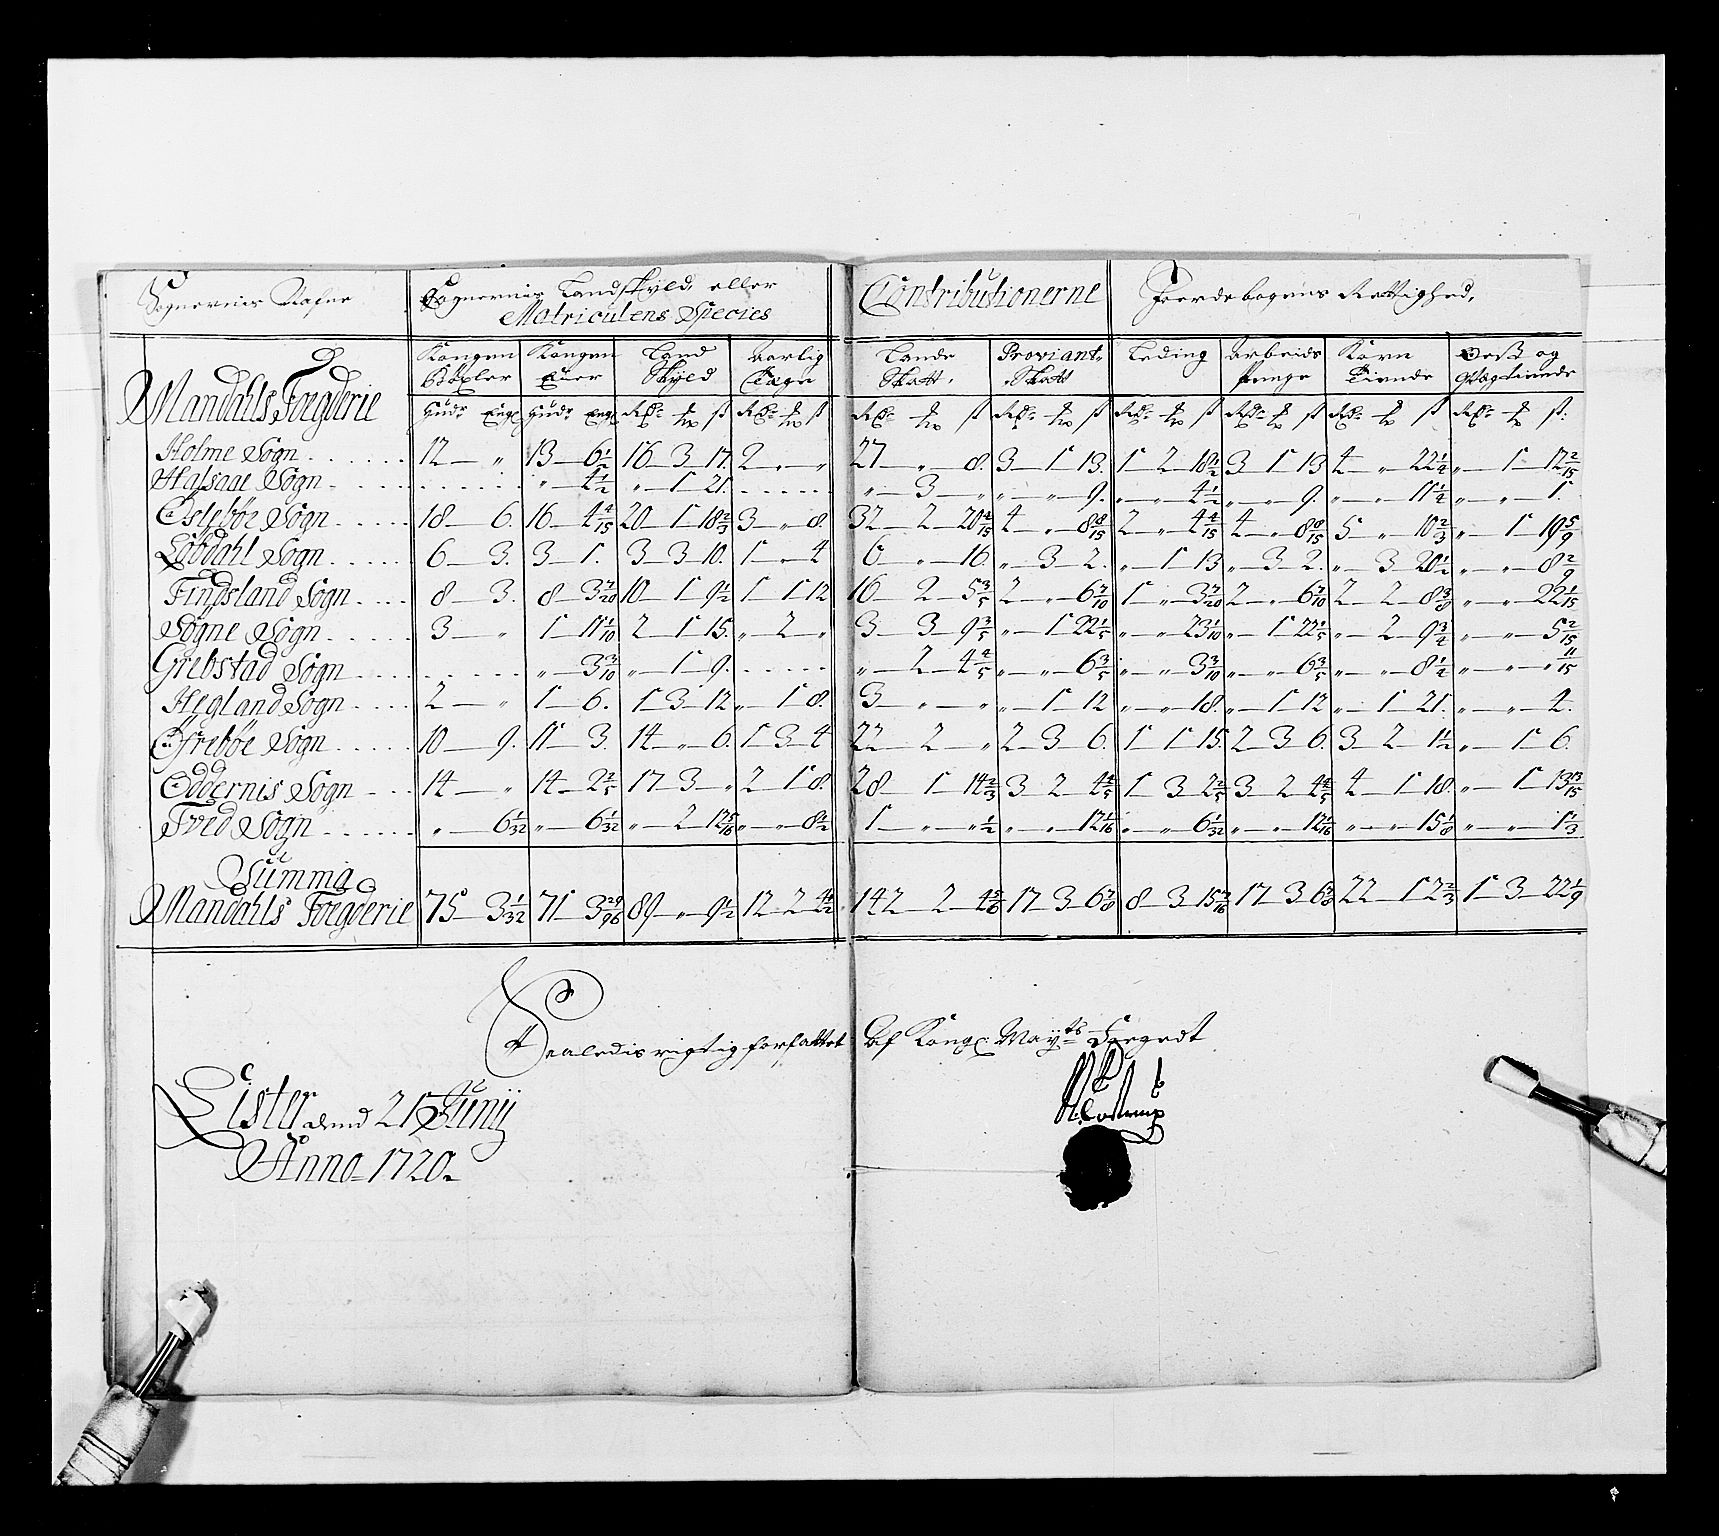 Sognernis Nafne | Sognernis Landskyld, eller | Contributionerne | Joerdebogens Rettighed,
Matriculens Species
Mandahls Foegderie | Kongen Böxler | Kongen Eiier | Land Skyld | aarlig Tægn | Lande Skatt. | Proviant Skatt | Leding | Arbeids Penge | Korn Tiende | Oest og Qvægtiende
Holme Sogn | 12 — „ | 13 — 6 1/2 | 16 — 3 — 17. | 2 „ „ | 27 — „ — 8. | 3 — 1 — 13. | 1 — 2 — 18 1/2 | 3 — 1 — 13 | 4 — „ — 22 1/4 | „ — 1 — 12 2/15
Halsaae Sogn | . . . . | „ — 4 1/2 | „ — 1 — 21. | . . . . | „ — 3 — „ | „ — „ — 9. | „ — „ — 4 1/2 | „ — „ — 9. | „ — „ — 11 1/4 | „ — „ — 1.
Öslebøe Sogn | 18 — 6. | 16 — 4 4/15 | 20 — 1 — 18 2/3 | 3 — „ — 8. | 32 — 2 — 20 4/15 | 4 — „ — 8 8/15 | 2 — „ — 4 4/15 | 4 — „ — 8 8/15 | 5 — „ — 10 2/3 | „ — 1 — 19 5/9
Löbdahl Sogn | 6 — 3. | 3 — 1. | 3 — 3 — 10. | 1 — „ — 4 | 6 — „ — 16. | „ — 3 — 2. | „ — 1 — 13 | „ — 3 — 2. | „ — 3 — 20 1/2 | „ — „ — 8 2/9
Findsland Sogn | 8 — 3. | 8 — 3 7/20 | 10 — 1 — 9 1/2 | 1 — 1 — 12 | 16 — 2 — 5 3/5 | 2 — „ — 6 7/10 | 1 — „ — 3 7/20 | 2 — „ — 6 7/10 | 2 — 2 — 8 3/8 | „ — „ — 22 1/15
Sögne Sogn | 3 — „ | 1 — 11 1/10 | 2 — 1 — 15. | „ — 2 — „ | 3 — 3 — 9 3/5 | „ — 1 — 22 1/5 | „ — „ — 23 1/10 | „ — 1 — 22 1/5 | „ — 2 — 9 3/4 | „ — „ — 5 2/15
Grebstad Sogn | . . . . | „ — 3 3/10 | „ — 1 — 9. | . . . . | „ — 2 — 4 4/5 | „ — „ — 6 3/5 | „ — „ — 3 3/10 | „ — „ — 6 3/5 | „ — „ — 8 1/4 | „ — „ — „ 11/15
Hegland Sogn | 2 — „ | 1 — 6. | 1 — 3 — 12 | „ — 1 — 8. | 3 — „ — „ | „ — 1 — 12 | „ — „ — 18. | „ — 1 — 12 | „ — 1 — 21. | „ — „ — 4.
Öfrebøe Sogn | 10 — 9. | 11 — 3. | 14 — „ — 6. | 1 — 3 — 4 | 22 — 2 — „ | 2 — 3 — 6. | 1 — 1 — 15. | 2 — 3 — 6. | 3 — 2 — 1 1/2 | „ — 1 — 6.
Oddernis Sogn | 14 — „ | 14 — 2 2/5 | 17 — 3 — „ | 2 — 1 — 8. | 28 — 1 — 14 2/3 | 3 — 2 — 4 4/5 | 1 — 3 — 2 2/5 | 3 — 2 — 4 4/5 | 4 — 1 — 18. | „ — 1 — 13 13/15
Tved Sogn | „ — 6 1/32 | „ — 6 1/32 | „ — 2 — 12 5/16 | „ — „ — 8 1/2 | 1 — „ — „ 1/2 | „ — „ — 12 1/16 | „ — „ — 6 1/32 | „ — „ — 12 1/16 | „ — „ — 15 1/8 | „ — „ — 1 1/3
Summa
Mandahls Foegderie | 75 — 3 1/32 | 71 — 3 29/96 | 89 — „ — 9 1/2 | 12 — 2 — 4 1/2 | 142 — 2 — 4 5/6 | 17 — 3 — 6 7/8 | 8 — 3 — 15 7/16 | 17 — 3 — 6 7/8 | 22 — 1 — 2 2/3 | 1 — 3 — 22 1/9
Saaledis rigtig forfattet Af Kongl: Mayts Foegedt
Lister dend 21 Junij
Anno 1720.